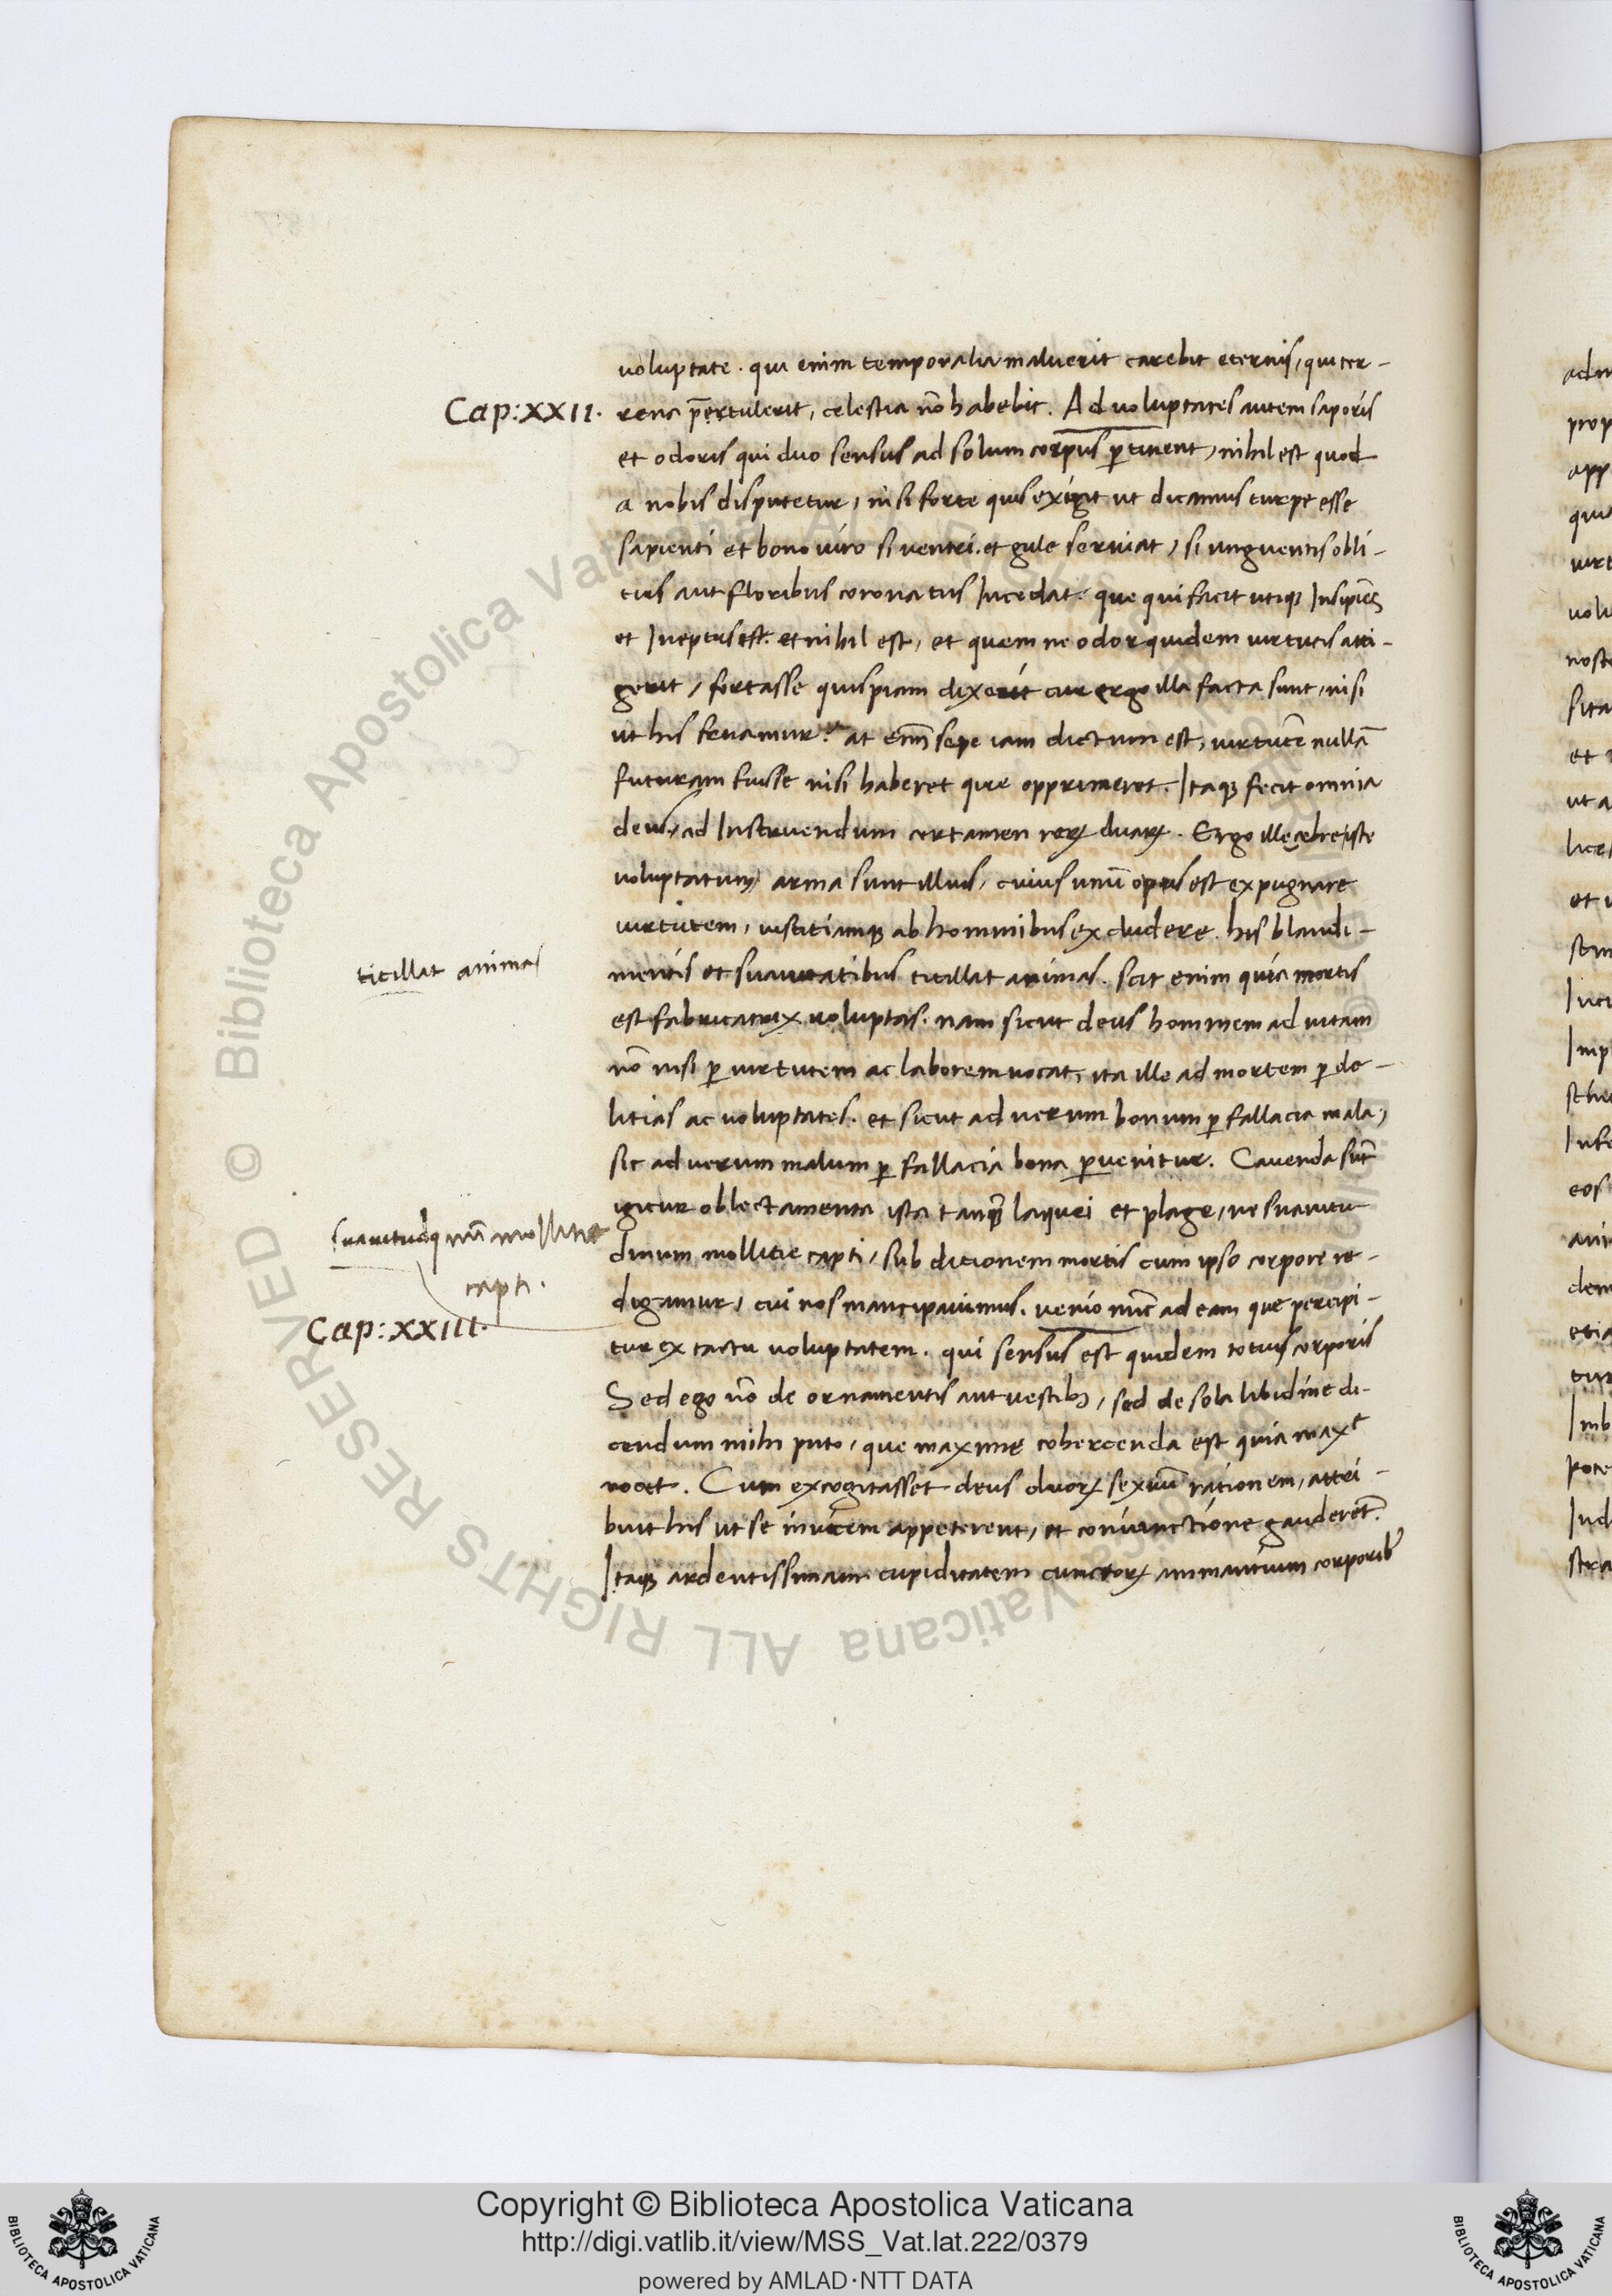 voluptate. qui enim temporalia maluerit carebit eternis, qui ter-
Cap: XXII.
rena p̄ertulerit, celestia nō habebit. Ad voluptates autem saporis
et odoris qui duo sensus ad solum corpus ꝑtinent, nihil est quod
a nobis disputetur, nisi forte quis exigit ut dicamus turpe esse
sapienti et bono viro si ventri. et gule serviat, si unguentis obli-
tus aut floribus coronatus Incedat. que qui facit utiqꝫ Insipiēs
et Ineptus est. et nihil est, et quem ne odor quidem virtutis atti-
gerit, fortasse quispiam dixerit cur ergo illa facta sunt, nisi
ut his fruamur? at enī sepe iam dictum est, virtutē nullā
futuram fuisse nisi haberet que opprimeret. Itaqꝫ fecit omnia
deus, ad Instruendum certamen rerꝝ duarꝝ. Ergo illecebre iste
voluptatum arma sunt illius, cuius unū opus est expugnare
virtutem, iustitiamqꝫ ab hominibus excludere. his blandi-
titillat animas
mentis et suavitatibus titillat animas. scit enim quia mortis
est fabricatrix voluptas. nam sicut deus hominem ad vitam
nō nisi ꝑ virtutem ac laborem vocat, ita ille ad mortem ꝑ de-
litias ac voluptates. et sicut ad verum bonum ꝑ fallacia mala,
sic ad verum malum ꝑ fallacia bona ꝑvenitur. Cavenda sūt
igitur oblectamenta ista tanqꝫ̄ laquei et plage, ne suavitu
mollitie
capti.
dinum mollitie capti, sub ditionem mortis cum ipso corpore re-
Cap: XXIII.
digamur, cui nos mancipavimus. venio nūc ad eam que percipi-
tur ex tactu voluptatem. qui sensus est quidem totius corporis
Sed ego nō de ornamentis aut vestibꝫ, sed de sola libidine di-
cendum mihi puto, que maxime cohercenda est quia maxᵉ
nocet. Cum excogitasset deus duorꝝ sexuū rationem, attri-
buit his ut se invicem appeterent, et coniunctione gauderēt.
Itaqꝫ ardentissimam cupiditatem cunctorꝝ animantium corporibꝰ
Copyright © Biblioteca Apostolica Vaticana
http://digi.vatlib.it/view/MSS_Vat.lat.222/0379
powered by AMLAD·NTT DATA